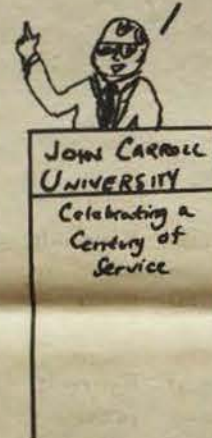 JOHN CARROLL
UNIVERSITY
Celebrating a
Century of
Service